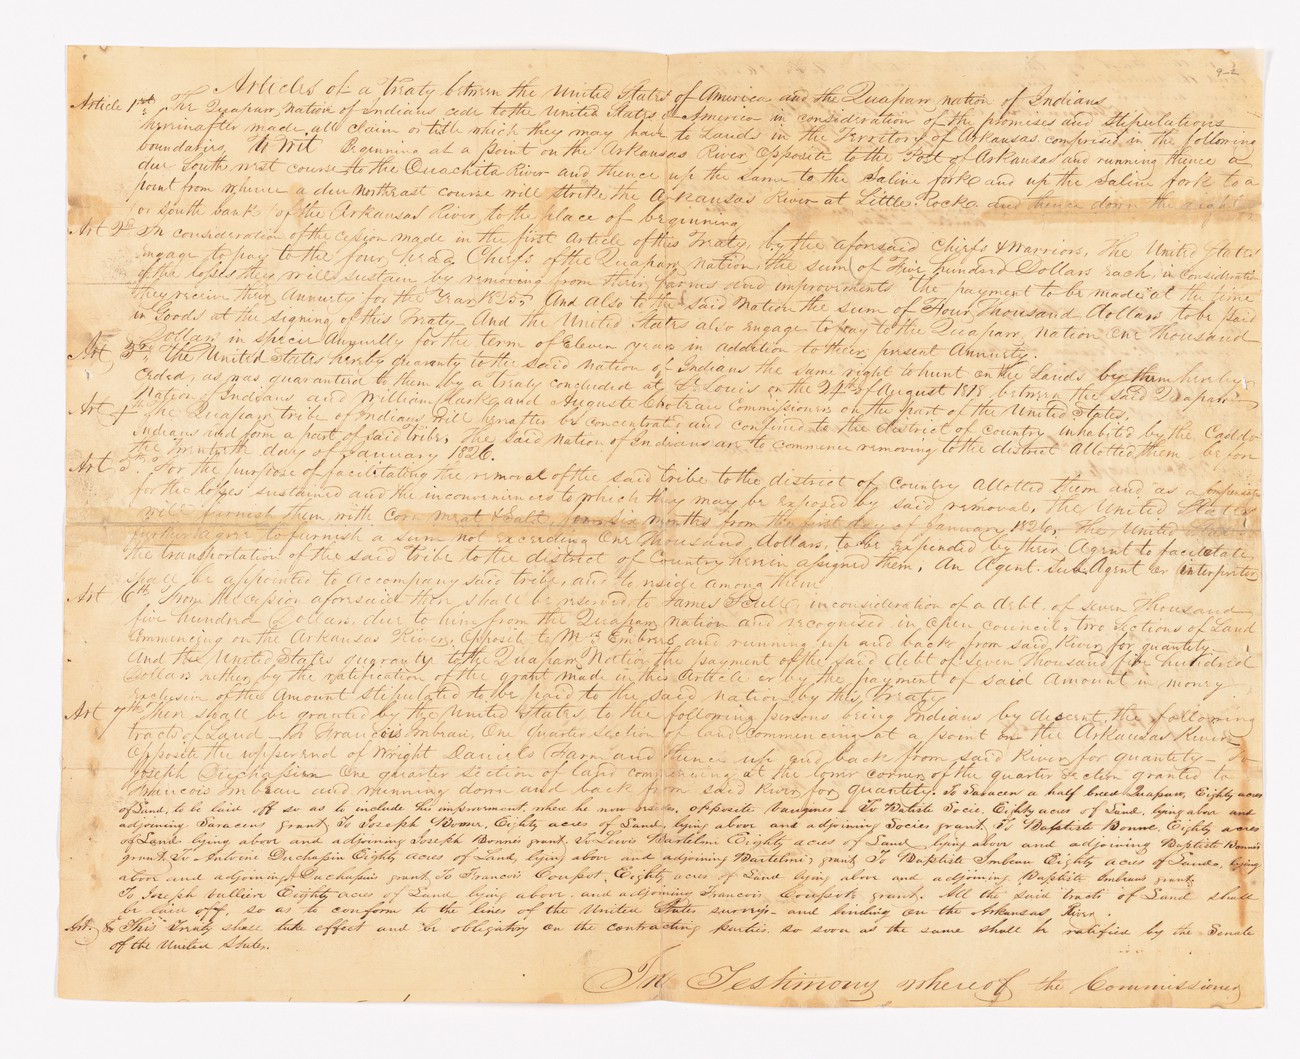 9-2
Articles of a Treaty between the United States of America and the Quapaw nation of Indians
Article 1st. The Quapaw nation of Indians cede to the United States of America in consideration of the promises and stipulations
hereinafter made, all claim or title which they may have to Lands in the Territory of Arkansas comprised in the following
boundaries, To Wit Beginning at a point on the Arkansas River opposite to the Post of Arkansas and running thence a
due South west course to the Ouachita River and thence up the same to the Saline fork and up the Saline fork to a
point from whence a due Northeast course will strike the Arkansas River at Little Rock and thence down the right
or south bank of the Arkansas River to the place of beginning
Art 2d In consideration of the cession made in the first Article of this Treaty, by the aforesaid Chiefs & Warriors, The United States
engage to pay to the four head Chiefs of the Quapaw nation, the sum of Five hundred Dollars each, in consideration
of the losses they will sustain by removing from their farms and improvements The payment to be made at the time
they receive their Annuities for the Year 1825, And Also to the said Nation the sum of Four Thousand dollars to be paid
in Goods at the signing of this Treaty And the United States also engage to pay to the Quapaw nation One Thousand
Dollars in specie Annually for the term of Eleven years in addition to their present Annuity.
Art 3d, The United States hereby guaranty to the said nation of Indians the same right to hunt on the Lands by them hereby
Ceded, as was guaranteed to them by a treaty concluded at St Louis on the 24th of August 1818 between the said Quapaw
Nation of Indians and William Clark and Auguste Choteau Commissioners on the part of the United States.
Art 4th The Quapaw tribe of Indians will hereafter be concentrated and confined to the district of country inhabited by the Caddo
Indians and form a part of said tribe, The said nation of Indians are to commence removing to the district allotted them before
the Twentieth day of January 1826.
Art 5th. For the purpose of facilitating the removal of the said tribe to the district of Country allotted them and as a compensation
for the losses sustained and the inconveniences to which they may be exposed by said removal, The United States
will furnish them with Corn meat & Salt, for six months from the first day of January 1826, The United States
further agree to furnish a sum not exceeding One Thousand dollars, to be expended by their Agent to facilitate
the transportation of the said tribe to the district of Country herein assigned them, An Agent, Sub Agent or interpreter
shall be appointed to accompany said tribe, and to reside among them
Art 6th From the cession aforesaid there shall be reserved to James Scull in consideration of a debt of seven Thousand
five hundred Dollars, due to him from the Quapaw nation and recognised in open council, two sections of Land
Commencing on the Arkansas River, opposite to Mrs Embree and running up and back from said River for quantity
And the United States guaranty to the Quapaw Nation the payment of the said debt of seven thousand five hundred
Dollars either by the ratification of the grant made in this Article or by the payment of said Amount in money
exclusive of the Amount stipulated to be paid to the said nation by this Treaty
Art 7th There shall be granted by the United States to the following persons being Indians by descent, the following
tracts of Land to Francois Imbeau, One quarter section of land commencing at a point on the Arkansas River
Opposite the upper end of Wright Daniels Farm and thence up and back from said River for quantity To
Joseph Duchassien One quarter section of land commencing at the lower corner of the quarter section granted to
Francois Imbeau and running down and back from said River for quantity. To Saracen a half breed Quapaw, Eighty acres
of Land, to be laid off so as to include his improvement, where he now resides, opposite Vaugines To Batiste Socie, Eighty acres of Land, lying above and
adjoining Saracens grant To Joseph Bonne, Eighty acres of Land, lying above and adjoining Socies grant, To Baptiste Bonne, Eighty acres
of Land lying above and adjoining Joseph Bonne's grant To Lewis Bartelmi Eighty acres of Land lying above and adjoining Baptiste Bonne's
grant. To Antoine Duchassin Eighty acres of Land, lying above and adjoining Bartelmi's grant To Baptiste Imbeau Eighty acres of Land, lying
above and adjoining Duchassins grant To Francois Coupot Eighty acres of Land lying above and adjoining Baptiste Imbeaus grant,
To Joseph Valliere Eighty acres of Land lying above and adjoining Francois Coupots grant. All the said tracts of Land shall
be laid off, so as to conform to the lines of the United States surveys and binding on the Arkansas River.
Art. 8 This treaty shall take effect and be obligatory on the contracting parties so soon as the same shall be ratified by the Senate
of the United States.
In Testimony whereof the Commissioner